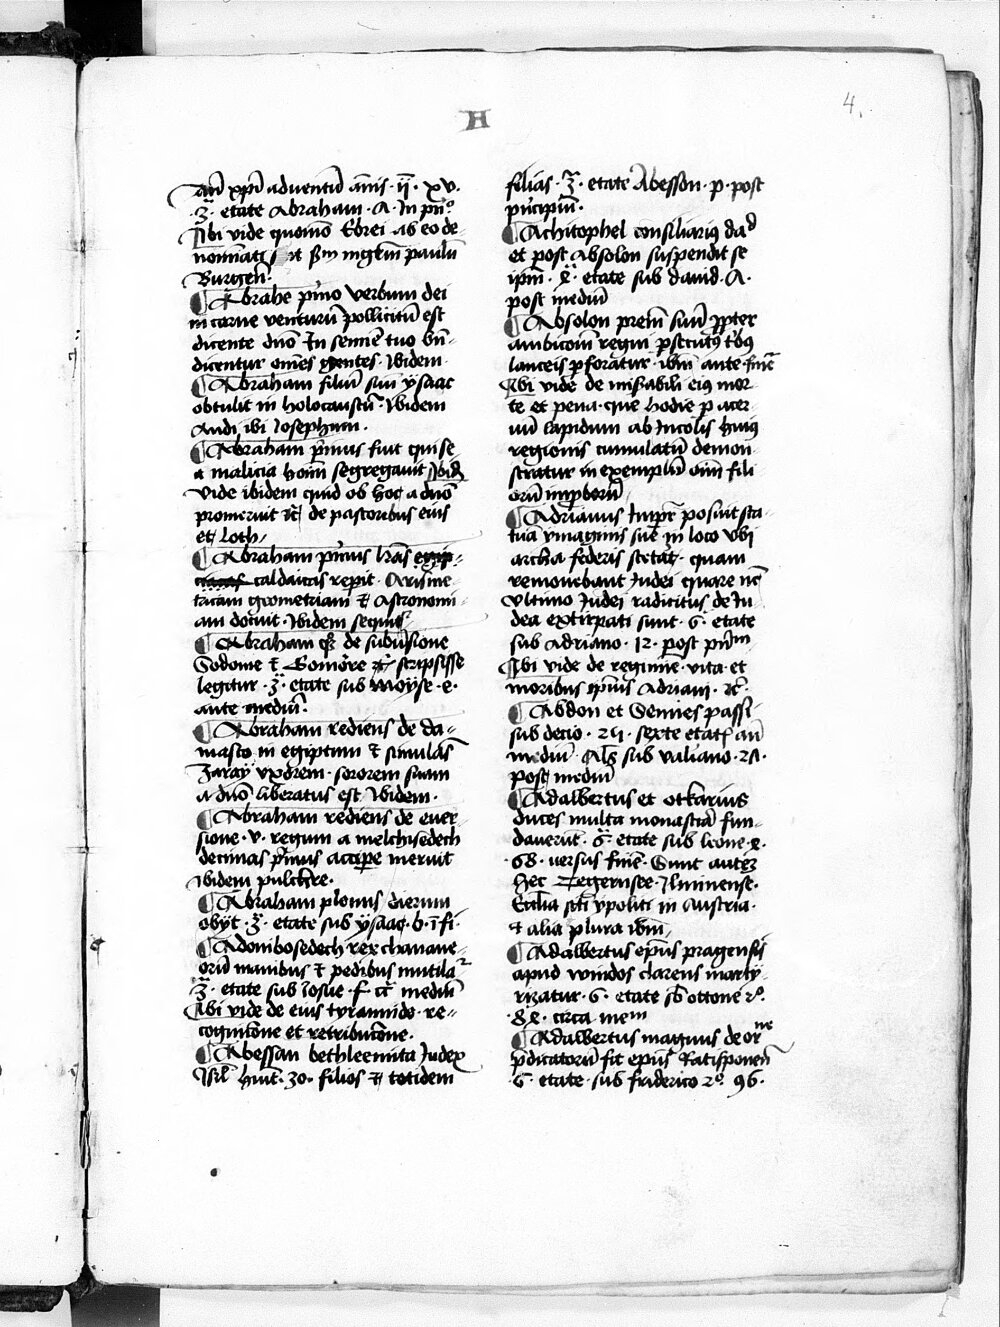 4.
A
Añ xp̄i adventū añis · ij̄ · xv ·
· 3ᵃ · etate Abraham · A · In prī°
Ibi vide quomō Ebrei ab eo de-
nominati s̄t ut scd̄m mgr̄m paulū
Burgeñ ·
¶ Abrahe p̄mo verbum dei
in carne venturū pollicitū est
dicente dn̄o In semīe tuo bn̄-
dicentur om̄es gentes · Ibidem ·
¶ Abraham filiū suū ysaac
obtulit in holocaustū · Ibidem
Audi ibi Iosephum ·
¶ Abraham p̄mus fuit qui se
a malicia hoīm segregavit Ibid̄
Vide ibidem quid ob hoc a dn̄o
promeruit &c̄ de pastoribus eius
et Loth
¶ Abraham p̄mus lr̄as egip-
ciacas caldaicas rep̄it · Arisme-
tricam geometriam & Astronomi-
am docuit · Ibidem sequīs
¶ Abraham qz de subūsione
Sodome & Gomorre scripsisse
legitur · 3ᵃ · etate sub Moyse · e ·
ante mediū ·
¶ Abraham rediens de da-
masco in egiptum & simulās
Zaray vxorem · sororem suam
a dn̄o liberatus est Ibidem ·
¶ Abraham rediens de ever-
sione · v · regum a melchisedech
decimas p̄mus accipe meruit
Ibidem pulchre ·
¶ Abraham plenus dierum
obijt · 3ᵃ · etate sub ysaac · b · ī fi ·
¶ Adonibosedech rex chanane-
orū manibus & pedibus mutilaᵗ
3ᵃ · etate sub Iosue · f · cᵃ mediū
Ibi vide de eius tyrannide · re-
cognitione et retributione ·
¶ Abessan bethleemita Iudex
Isrl̄ hūit · 30 · filios & totidem
filias · 3ᵃ · etate Abesson · p · post
prīcipiū ·
¶ Achitophel consiliarius dad̄
et post Absolon suspendit se
ip̄m · 4ᵃ · etate sub david · A ·
post mediū
¶ Absolon prem̄ suū p̄pter
ambicōnē regni p̄secutus tribus
lanceis p̄foratur · ibm̄ ante finē
Ibi vide de mis̄abili eius mor-
te et pena · que hodie p acer-
vū lapidum ab Incolis huius
regionis cumulatū demon-
stratur in exemplū om̄ fili
orū improborū
¶ Adrianus Impr̄ posuit sta-
tuā ymaginis sue in loco vbi
archa federis stetat · quam
removebant Iudei quare nc̄
vltimo Iudei radicitus de Iu-
dea extirpati sunt · 6 · etate
sub Adriano · 12 · post prīm
Ibi vide de regimīe · vita et
moribus ipsius Adriani · &c̄ ·
¶ Abdon et Sennes passi
sub decio · 24 · sexte etatis añ
mediū · Als̄ sub valiano · 2A ·
post mediū
¶ Adalbertus et otkarius
duces multa monast̄ia fun-
daverūt · 6ᵃ · etate sub leone 4 ·
68 · versus finē · Sunt autem
hec Tegernsee · Ilminense ·
Ecclīa scti ypoliti in Austria ·
& alia plura ibm̄ ·
¶ Adalbertus ep̄us pragensis
apud windos clarens marty-
rizatur · 6 · etate sb ottone 2° ·
84 · circa mēm
¶ Adalbertus magnus de orⁿᵉ
p̄dicatorū fit ep̄us Ratisponeñ
6 · etate · sub friderico 2° · 96 ·